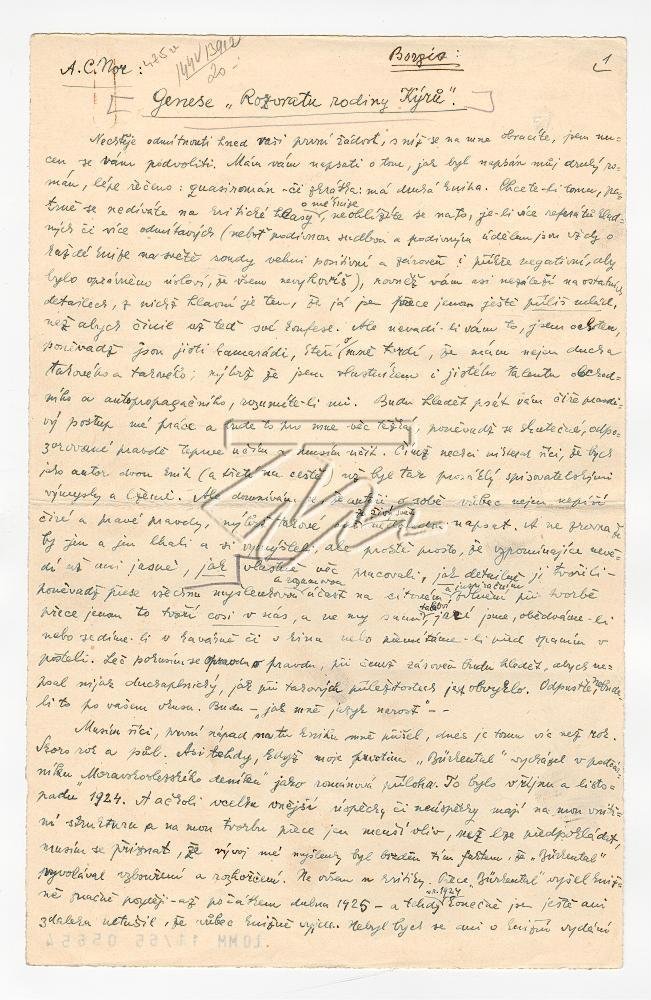 A. C. Nor : 475u
144V/13912
20.-
Borgis :
1
Genese „Rozvratu rodiny Kýrů".
Nechtěje odmítnouti hned vaši první žádost, s níž se na mne obracíte, jsem nu-
cen se vám podvoliti. Mám vám napsati o tom, jak byl napsán můj druhý ro-
mán, lépe řečeno: quasiromán – či zkrátka: má druhá kniha. Chcete-li tomu, pa-
trně se nedíváte na kritické hlasy o mé knize, neohlížíte se na to, je-li více referátů klad-
ných či více odmítavých (neboť podivnou sudbou a podivným údělem jsou vždy o
každé knize na světě soudy velmi positivní a zároveň i příkře negativní, aby
bylo oprávněno úsloví, že všem nevyhovíš), rovněž vám asi nezáleží na ostatních
detailech, z nichž hlavní je ten, že já jsem přece jenom ještě příliš mlád,
než abych činil už teď své konfese. Ale nevadí-li vám to, jsem ochoten,
poněvadž jsou jistí kamarádi, kteří o mně tvrdí, že mám nejen ducha
takového a takového, nýbrž že jsem vlastníkem i jistého talentu obchod-
ního a autopropagačního, rozumíte-li mi. Budu hledět psát vám čirý pravdi-
vý postup mé práce a bude to pro mne věc těžká, poněvadž se skutečné, odpo-
zorované pravdě teprve učím a musím učit. Čímž nechci nikterak říci, že bych
jako autor dvou knih (a třetí na cestě) už byl tak prosáklý spisovatelskými
výmysly a lžemi. Ale domnívám se, že autoři o sobě vůbec nejen nepíší
čiré a pravé pravdy, nýbrž takové, že životně ani nedovedou napsat. A ne zrovna že
by jen a jen lhali a si vymýšleli, ale prostě proto, že vzpomínajíce nevě-
dí už ani jasně, jak vlastně věc pracovali, jak detailně ji tvořili –
poněvadž přese všechnu myšlenkovou a rozumovou účast na citovém a inspiračním plnění při tvorbě
přece jenom to tvoří cosi v nás, a ne my sami, takoví jací jsme, obědváme-li
nebo sedíme-li v kavárně či v kinu nebo přemítáme-li před spaním v
posteli. Leč pokusím se opravdu o pravdu, při čemž zároveň budu hledět, abych ne-
psal nijak duchaplnický, jak při takových příležitostech jest obvyklo. Odpusťte, nebude-
li to po vašem vkusu. Budu – jak mně jazyk narost" – –
Musím říci, první nápad na tu knihu mně přišel, dnes je tomu víc než rok.
Skoro rok a půl. Asi tehdy, když moje prvotina „Bürkental" vycházel v poděl-
níku „Moravskoslezského deníku" jako románová příloha. To bylo v říjnu a listo-
padu 1924. A ačkoli vcelku vnější úspěchy či neúspěchy mají na mou vnitř-
ní strukturu a na mou tvorbu přece jen menší vliv, než lze předpokládat,
musím se přiznat, že vývoj mé myšlenky byl brzděn tím faktem, že „Bürkental"
vyvolával vzbouření a rozhořčení. Ne ovšem u kritiky. Přece „Bürkental" vyšel kniž-
ně značně později – až počátkem dubna 1925 – a tehdy v r. 1924 konečně jsem ještě ani
zdaleka netušil, že vůbec knižně vyjde. Nebyl bych se ani o knižní vydání
LOMM 11/65 05654